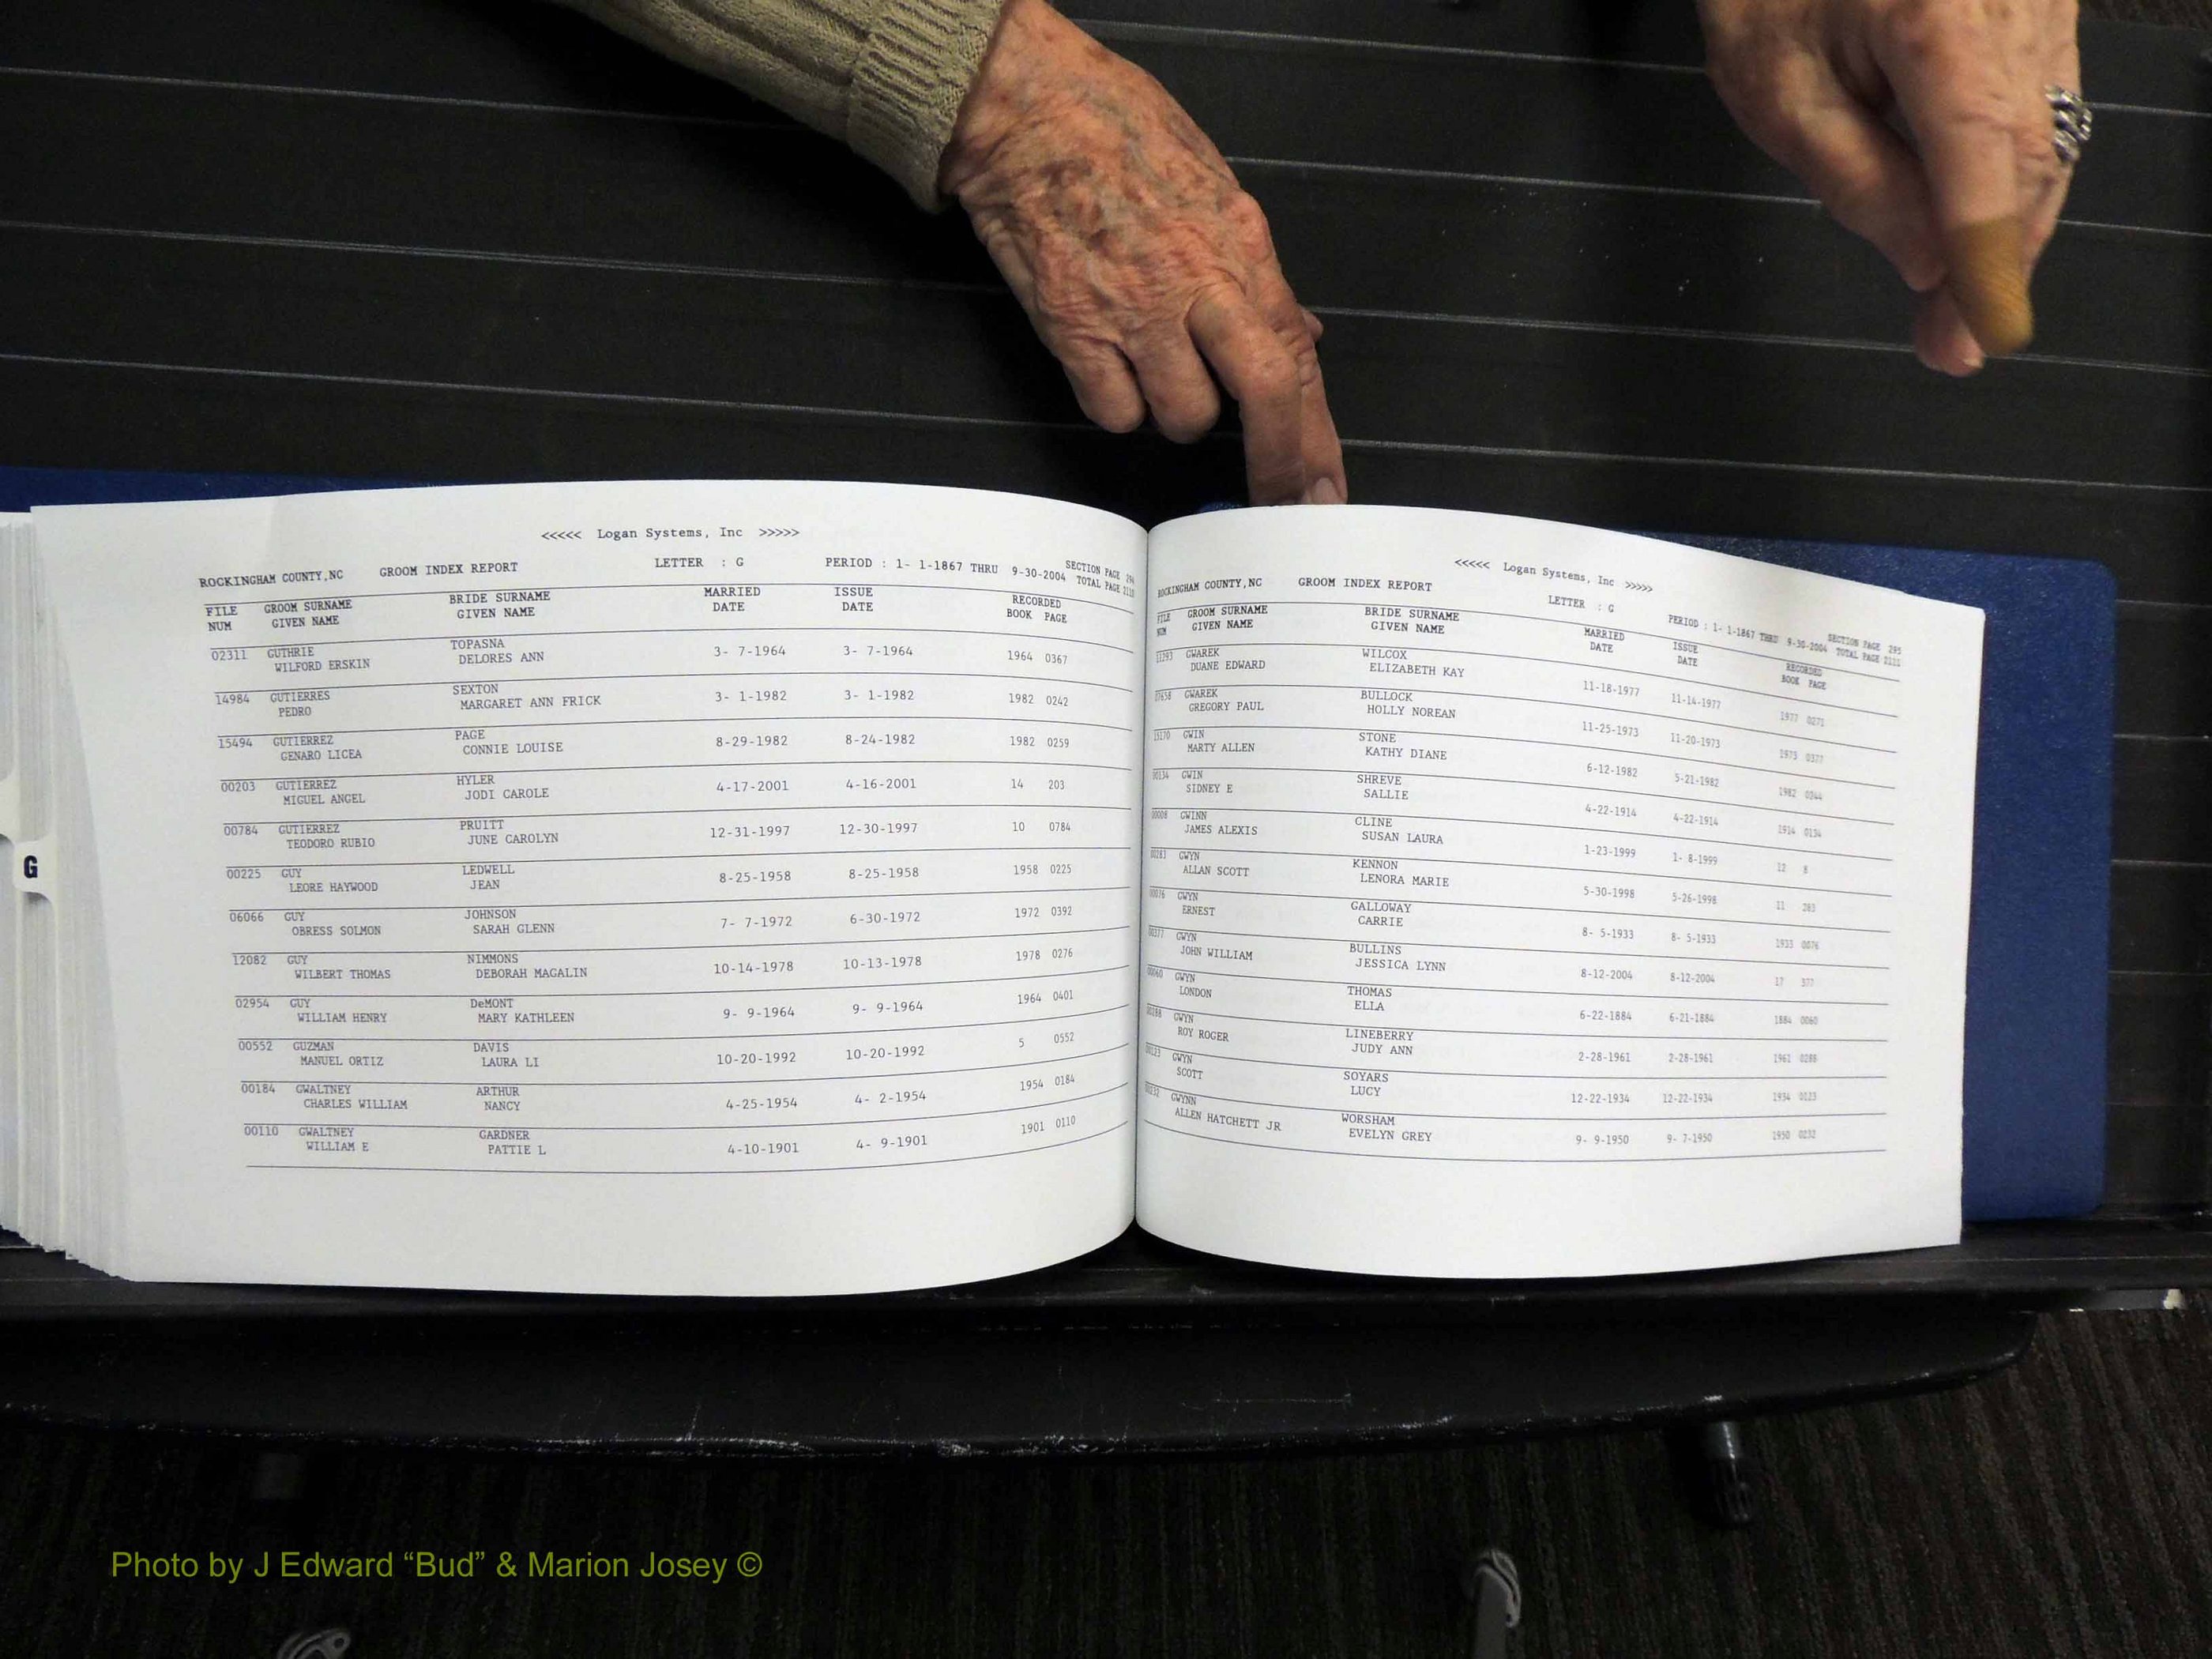 <<<<< Logan Systems, Inc >>>>>
ROCKINGHAM COUNTY,NC GROOM INDEX REPORT LETTER : G PERIOD : 1- 1-1867 THRU 9-30-2004 SECTION PAGE
TOTAL PAGE
FILE GROOM SURNAME BRIDE SURNAME MARRIED ISSUE RECORDED
NUM GIVEN NAME GIVEN NAME DATE DATE BOOK PAGE
02311 GUTHRIE TOPASNA 3- 7-1964 3- 7-1964 1964 0367
WILFORD ERSKIN DELORES ANN
14984 GUTIERRES SEXTON 3- 1-1982 3- 1-1982 1982 0242
PEDRO MARGARET ANN FRICK
15494 GUTIERREZ PAGE 8-29-1982 8-24-1982 1982 0259
GENARO LICEA CONNIE LOUISE
00203 GUTIERREZ HYLER 4-17-2001 4-16-2001 14 203
MIGUEL ANGEL JODI CAROLE
00784 GUTIERREZ PRUITT 12-31-1997 12-30-1997 10 0784
TEODORO RUBIO JUNE CAROLYN
00225 GUY LEDWELL 8-25-1958 8-25-1958 1958 0225
LEORE HAYWOOD JEAN
06066 GUY JOHNSON 7- 7-1972 6-30-1972 1972 0392
OBRESS SOLMON SARAH GLENN
12082 GUY NIMMONS 10-14-1978 10-13-1978 1978 0276
WILBERT THOMAS DEBORAH MAGALIN
02954 GUY DeMONT 9- 9-1964 9- 9-1964 1964 0401
WILLIAM HENRY MARY KATHLEEN
00552 GUZMAN DAVIS 10-20-1992 10-20-1992 5 0552
MANUEL ORTIZ LAURA LI
00184 GWALTNEY ARTHUR 4-25-1954 4- 2-1954 1954 0184
CHARLES WILLIAM NANCY
00110 GWALTNEY GARDNER 4-10-1901 4- 9-1901 1901 0110
WILLIAM E PATTIE L
G
<<<<< Logan Systems, Inc >>>>>
ROCKINGHAM COUNTY,NC GROOM INDEX REPORT LETTER : G PERIOD : 1- 1-1867 THRU 9-30-2004 SECTION PAGE 295
TOTAL PAGE
FILE GROOM SURNAME BRIDE SURNAME MARRIED ISSUE RECORDED
NUM GIVEN NAME GIVEN NAME DATE DATE BOOK PAGE
GWAREK WILCOX 11-18-1977 11-14-1977 1977 0271
DUANE EDWARD ELIZABETH KAY
GWAREK BULLOCK 11-25-1973 11-20-1973 1973 0377
GREGORY PAUL HOLLY NOREAN
GWIN STONE 6-12-1982 5-21-1982 1982
MARTY ALLEN KATHY DIANE
00134 GWIN SHREVE 4-22-1914 4-22-1914 1914 0134
SIDNEY E SALLIE
00008 GWINN CLINE 1-23-1999 1- 8-1999 12 8
JAMES ALEXIS SUSAN LAURA
00283 GWYN KENNON 5-30-1998 5-26-1998 11 283
ALLAN SCOTT LENORA MARIE
00076 GWYN GALLOWAY 8- 5-1933 8- 5-1933 1933 0076
ERNEST CARRIE
00377 GWYN BULLINS 8-12-2004 8-12-2004 17 377
JOHN WILLIAM JESSICA LYNN
00060 GWYN THOMAS 6-22-1884 6-21-1884 1884 0060
LONDON ELLA
00288 GWYN LINEBERRY 2-28-1961 2-28-1961 1961 0288
ROY ROGER JUDY ANN
00123 GWYN SOYARS 12-22-1934 12-22-1934 1934 0123
SCOTT LUCY
00232 GWYNN WORSHAM 9- 9-1950 9- 7-1950 1950 0232
ALLEN HATCHETT JR EVELYN GREY
Photo by J Edward “Bud” & Marion Josey ©